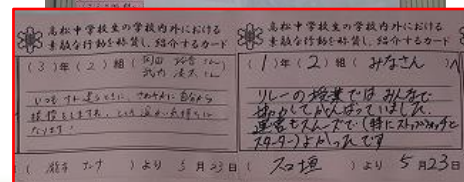 高松中学校生の学校内外における
素敵な行動を称賛し、紹介するカード
(3)年(2)組(
いつもすれ違うときに、さわやかに自分から
挨拶をしてくれ、とても温かい気持ちに
なります!
)より 5月23日
高松中学校生の学校内外における
素敵な行動を称賛し、紹介するカード
(1)年(2)組(みなさん)へ
リレーの授業ではみんなで
協力してがんばっていました。
運営もスムーズで(特にストップウォッチと
スターター)よかったです
(石垣)より 5月23日